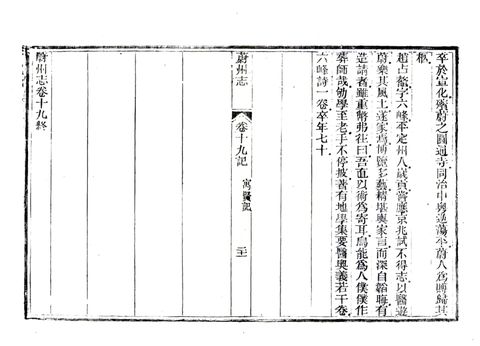 卒於宣化殯蔚之圓通寺同治中輿逆蕩平蔚人爲賻歸其
柩
趙占鰲字六峰平定州人歲貢嘗應京兆試不得志以醫遊
蔚樂其風土遂家焉博覽多藝精堪輿家言而深自韜晦有
延請者雖重幣弗往曰吾直以術爲寄耳烏能爲人僕僕作
葬師哉勤學至老手不停披著有地學集要醫輿義若干卷
六峰詩一卷卒年七十
蔚州志
卷十九記
寓賢記
蔚州志卷十九終